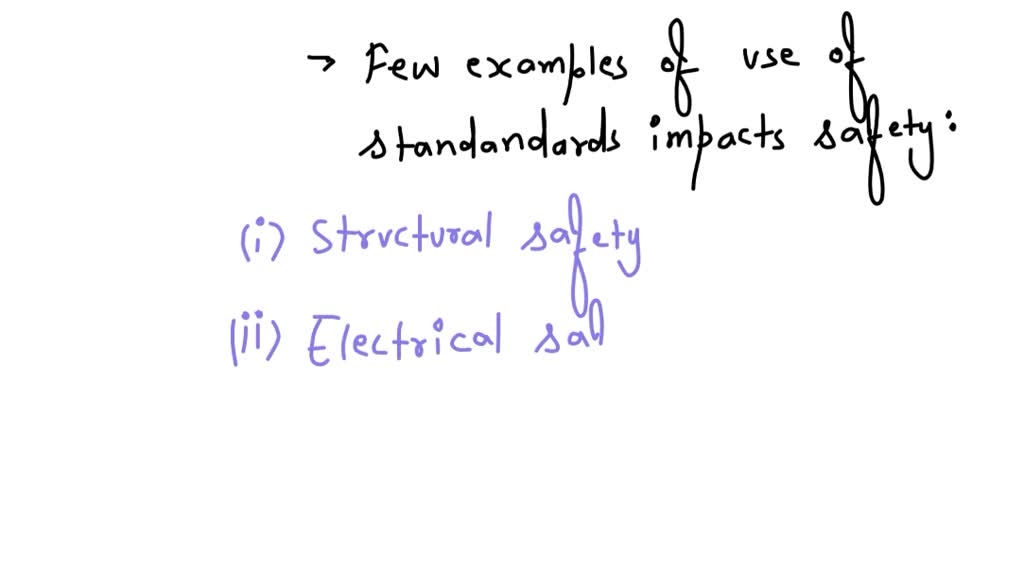 → Few examples of use of
standandards impacts safety:
(i) Structural safety
(ii) Electrical saf